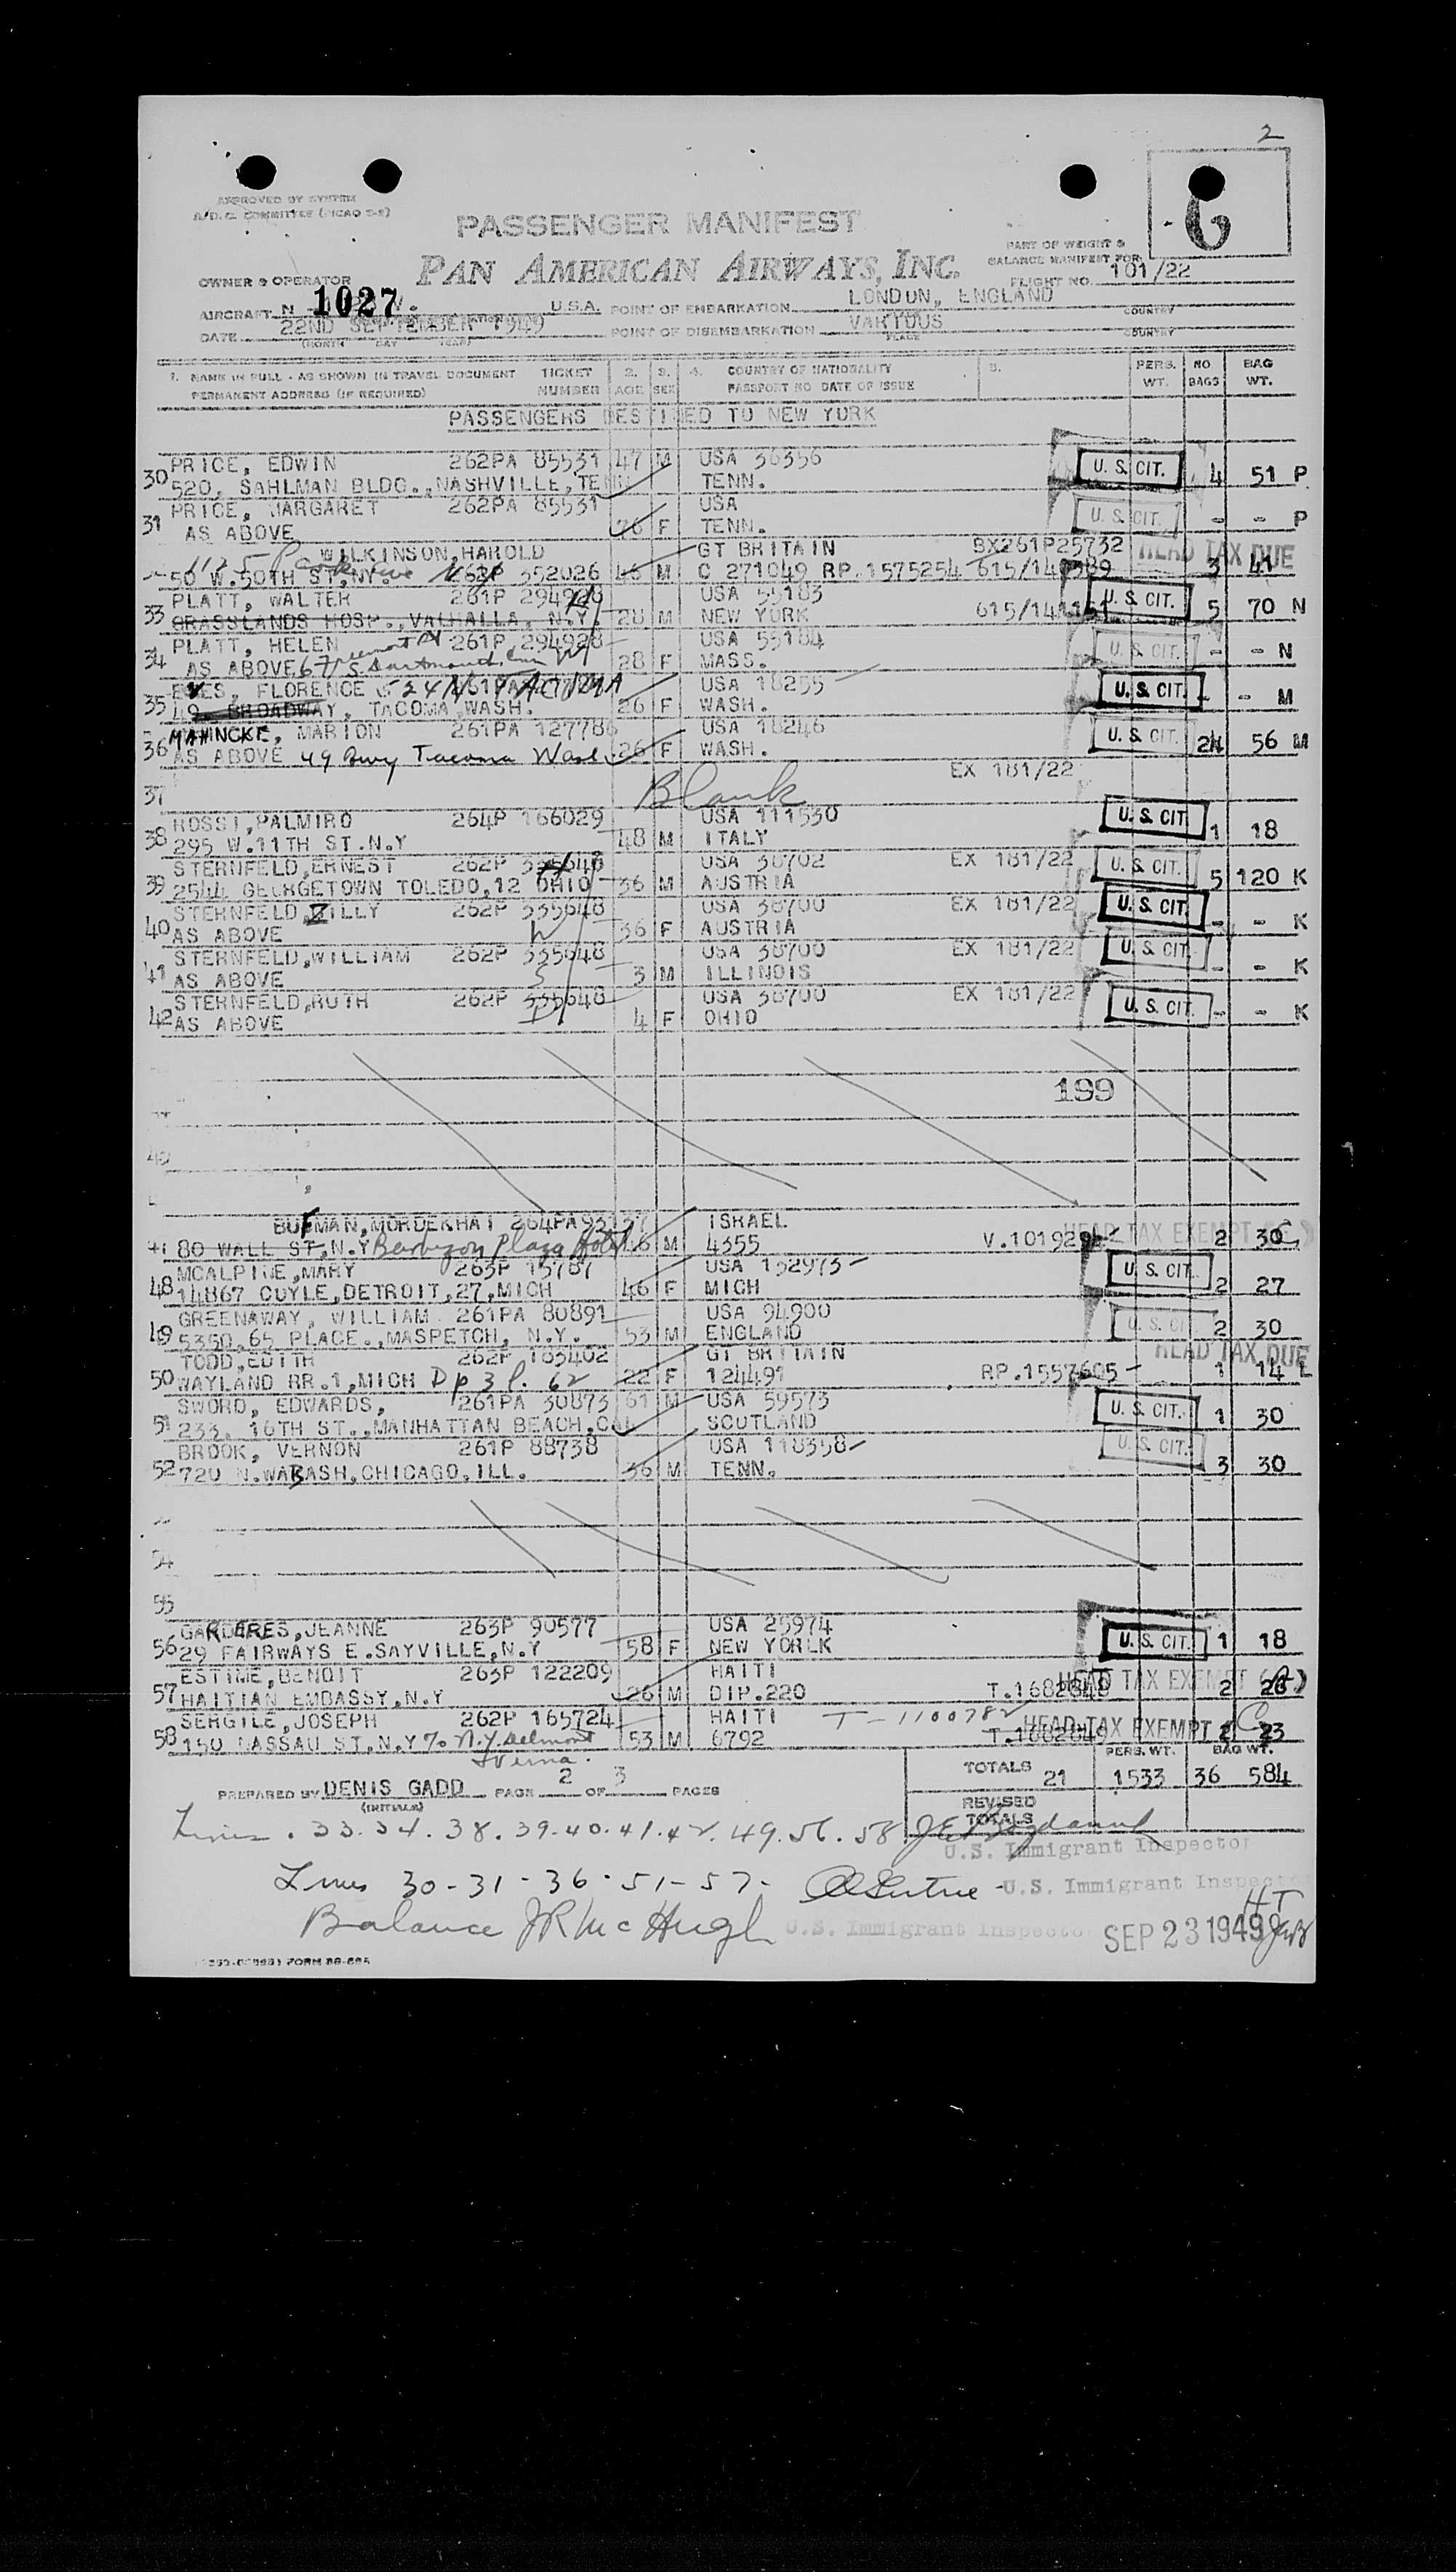 2
APPROVED BY SYSTEM
A/D.C. COMMITTEE (PICAO 2-2)
6
PASSENGER MANIFEST
PAN AMERICAN AIRWAYS, INC.
PART OF WEIGHT &
BALANCE MANIFEST FOR
OWNER & OPERATOR
FLIGHT NO. 101/22
AIRCRAFT N 1027 U.S.A. POINT OF EMBARKATION LONDON, ENGLAND COUNTRY
DATE 22ND SEPTEMBER 1949 POINT OF DISEMBARKATION VARIOUS COUNTRY
(MONTH DAY YEAR) PLACE
1. NAME IN FULL - AS SHOWN IN TRAVEL DOCUMENT TICKET 2. 3. 4. COUNTRY OF NATIONALITY 5. PERS. NO. BAG
PERMANENT ADDRESS (IF REQUIRED) NUMBER AGE SEX PASSPORT NO. DATE OF ISSUE WT. BAGS WT.
PASSENGERS DESTINED TO NEW YORK
PRICE, EDWIN 262PA 85531 47 M USA 36356
30 520, SAHLMAN BLDG., NASHVILLE, TENN TENN. U. S. CIT. 4 51 P
PRICE, MARGARET 262PA 85531 USA
31 AS ABOVE 26 F TENN. U. S. CIT. - - P
WILKINSON, HAROLD GT BRITAIN BX261P25732 HEAD TAX DUE
50 W.50TH ST, NY. 352026 46 M C 271049 RP.1575254 3 41
PLATT, WALTER 261P 294928 USA 55183
33 GRASSLANDS HOSP., VALHALLA, N.Y. 28 M NEW YORK U. S. CIT. 5 70 N
PLATT, HELEN 261P 294928 USA 55184
34 AS ABOVE 28 F MASS. U. S. CIT. - - N
FLORENCE 524 N TACOMA USA 18255
35 49, BROADWAY, TACOMA WASH. 26 F WASH. U. S. CIT. - - M
MAHNCKE, MARION 261PA 127786 USA 18246
36 AS ABOVE 49 Bwy Tacoma Wash 26 F WASH. U. S. CIT. 2 56 M
37 Blank EX 181/22
ROSSI, PALMIRO 264P 166029 USA 111530
38 295 W.11TH ST.N.Y 48 M ITALY U. S. CIT. 1 18
STERNFELD, ERNEST 262P 335648 USA 38702 EX 181/22
39 2544 GEORGETOWN TOLEDO, 12 OHIO 36 M AUSTRIA U. S. CIT. 5 120 K
STERNFELD, ZILLY 262P 335648 USA 38700 EX 181/22
40 AS ABOVE 36 F AUSTRIA U. S. CIT. - - K
STERNFELD, WILLIAM 262P 335648 USA 38700 EX 181/22
41 AS ABOVE 3 M ILLINOIS U. S. CIT. - - K
STERNFELD, RUTH 262P 335648 USA 38700 EX 181/22
42 AS ABOVE 4 F OHIO U. S. CIT. - - K
199
MORDEKHAI 264PA ISRAEL
80 WALL ST, N.Y Barbizon Plaza Hotel M 4355 HEAD TAX EXEMPT (C) 2 30
MCALPINE, MARY 263P 15787 USA 152973
48 14867 COYLE, DETROIT, 27, MICH 46 F MICH U. S. CIT. 2 27
GREENAWAY, WILLIAM 261PA 80891 USA 94900
49 5350, 65 PLACE., MASPETCH, N.Y. 53 M ENGLAND U. S. CIT. 2 30
TODD, EDITH 262P 163402 GT BRITAIN HEAD TAX DUE
50 WAYLAND RR.1, MICH 22 F 124491 RP.1557605 1 14 L
SWORD, EDWARDS, 261PA 30873 61 M USA 59573
51 233, 16TH ST., MANHATTAN BEACH, CAL SCOTLAND U. S. CIT. 1 30
BROOK, VERNON 261P 88738 USA 118358
52 720 N.WABASH, CHICAGO, ILL. 36 M TENN. U. S. CIT. 3 30
54
55
GARDERES, JEANNE 263P 90577 USA 25974
56 29 FAIRWAYS E.SAYVILLE, N.Y 58 F NEW YORLK U. S. CIT. 1 18
ESTIME, BENOIT 263P 122209 HAITI
57 HAITIAN EMBASSY, N.Y 26 M DIP.220 HEAD TAX EXEMPT 2 26
SERGILE, JOSEPH 262P 165724 HAITI T-1100782
58 150 NASSAU ST, N.Y 53 M 6792 HEAD TAX EXEMPT (C) 2 23
TOTALS 21 PERS. WT. 1533 36 BAG WT. 584
PREPARED BY DENIS GADD PAGE 2 OF 3 PAGES
(INITIALS)
REVISED
TOTALS
Lines . 33.34.38.39.40.41.42.49.56.58
U.S. Immigrant Inspector
Lines 30-31-36-51-57- U.S. Immigrant Inspector
Balance JR McHugh U.S. Immigrant Inspector SEP 23 1949